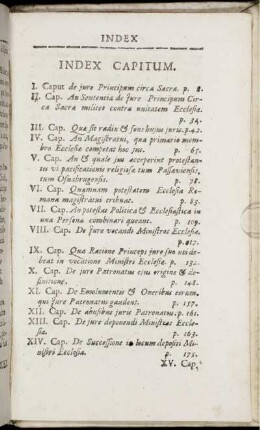 INDEX
INDEX CAPITUM.
I. Caput de jure Principum circa Sacra. p. 8.
II. Cap. An Sententia de Jure Principum Cir-
ca Sacra militet contra unitatem Ecclesiæ.
p. 34.
III. Cap. Quæ sit radix & fons hujus juris. p. 42.
IV. Cap. An Magistratui, qua primario mem-
bro Ecclesiæ competat hoc jus. p. 65.
V. Cap. An & quale jus acceperint protestan-
tes vi pacificationis religiosæ tum Passaviensis,
tum Osnabrugensis. p. 78.
VI. Cap. Quamnam potestatem Ecclesia Ro-
mana magistratui tribuat. p. 85.
VII. Cap. An potestas Politica & Ecclesiastica in
una Persona combinari queant. p. 109.
VIII. Cap. De jure vocandi Ministros Ecclesiæ.
p. 117.
IX. Cap. Qua Ratione Princeps jure suo uti de-
beat in vocatione Ministri Ecclesiæ. p. 132.
X. Cap. De jure Patronatus ejus origine & de-
finitione. p. 148.
XI. Cap. De Emolumentis & Oneribus eorum,
qui jure Patronatus gaudent. p. 157.
XII. Cap. De abusibus juris Patronatus. p. 161.
XIII. Cap. De jure deponendi Ministros Eccle-
siæ. p. 163.
XIV. Cap. De Successione in locum depositi Mi-
nistri Ecclesiæ. p. 175.
XV. Cap.